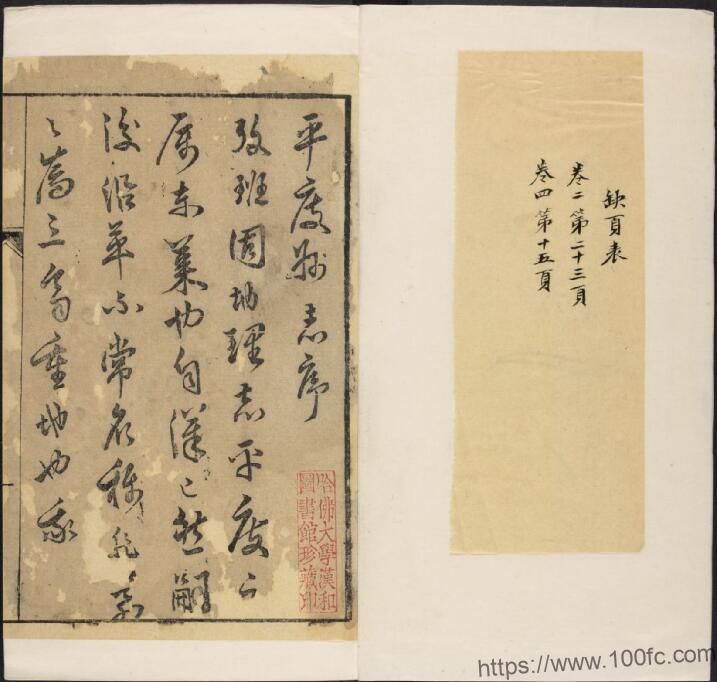 缺頁表
卷二第二十三頁
卷四第十五頁
平度縣志序
攷班固地理志平度之
屬東萊也自漢已然嗣
後沿革不常名稱
三為重地也
哈佛大學漢和
圖書館珍藏印
https://www.100fc.com